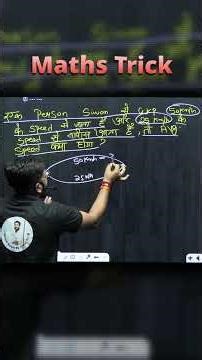 Maths Trick
एक Person Siwan से GKP 50km/h
के speed से जाता है और 25 km/h के
speed से वापिस आता है, तो Avg
Speed क्या होगा ?
50km/h
25 km/h